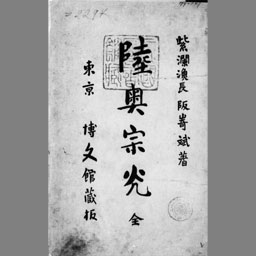 紫瀾漁長 阪崎斌著
陸奥宗光
全
東京 博文館蔵板